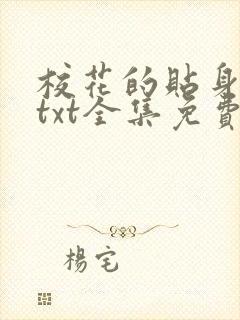 校花的貼身
txt全集免費
楊宅